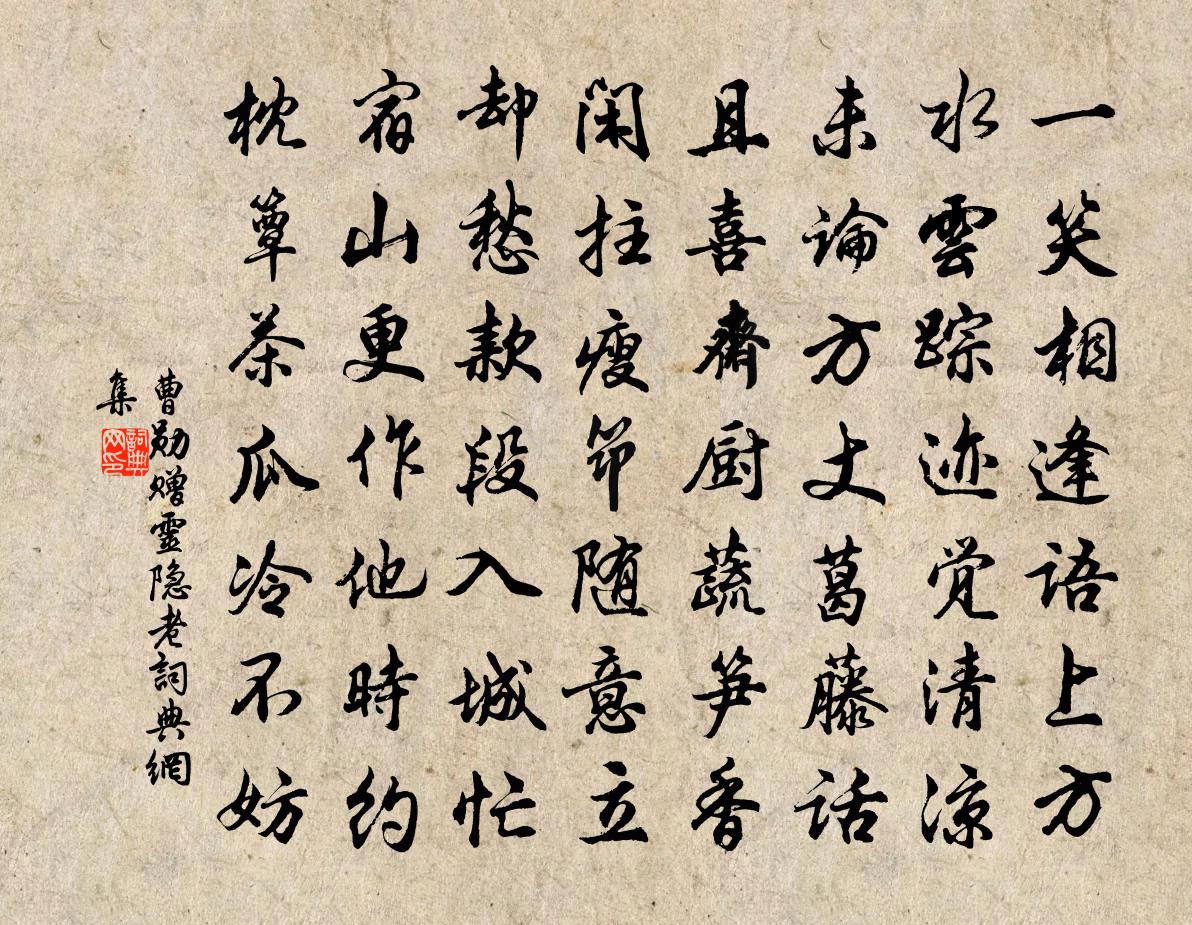 一笑相逢語上方
水雲踪迹觉清凉
未論方丈葛藤話
且喜齋厨蔬笋香
闲拄瘦筇随意立
却愁款段入城忙
宿山更作他時約
枕簟茶瓜冷不妨
曹勋赠靈隐老詞典網
集
詞典
网印